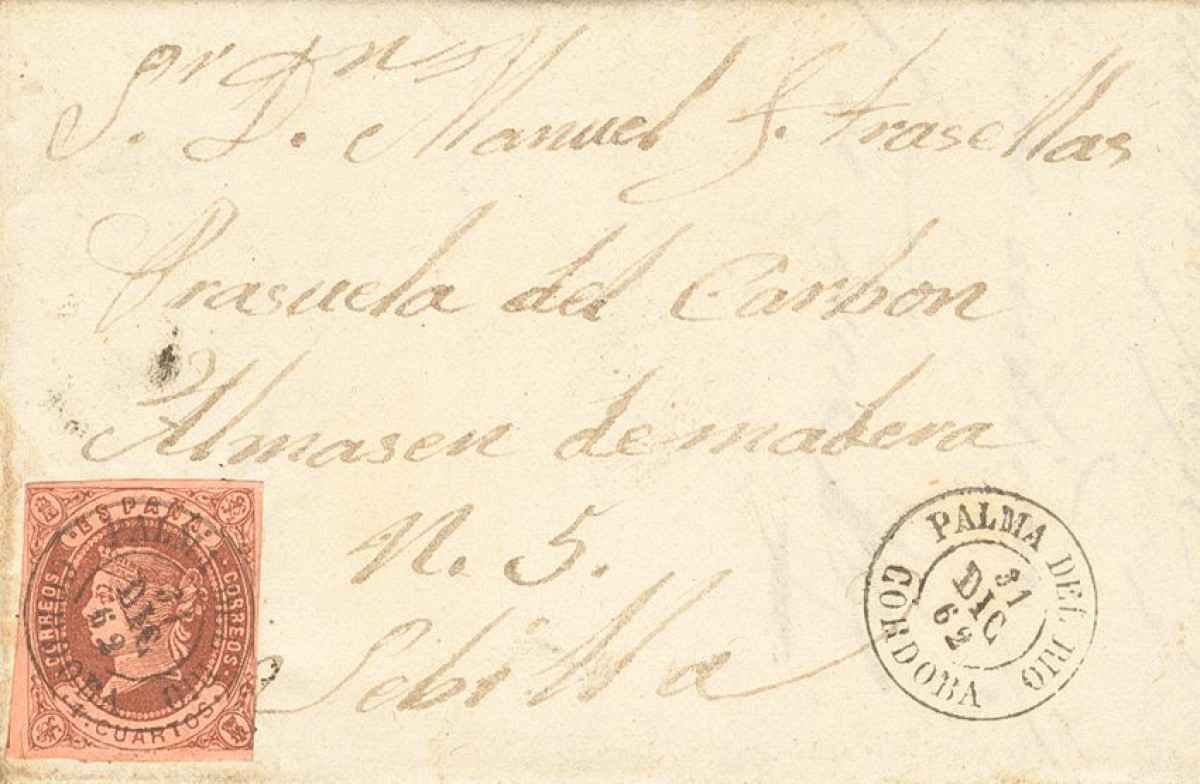 Sr Dn
S. D. Manuel J. Frasellas
Prasuela del Carbon
Almasen de madera
N. 5.
Sebilla
ESPAÑA
CORREOS
CORREOS
4 CUARTOS
PALMA
31
DIC
62
CORDOBA
PALMA DEL RIO
31
DIC
62
CORDOBA